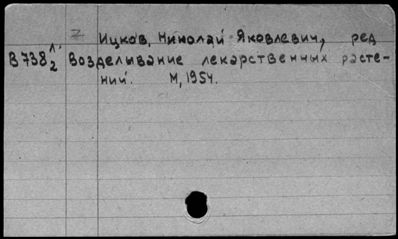 Ицков, Николай Яковлевич, ред
В738 Л. 2 Возделывание лекарственных расте-
ний. М, 1954.